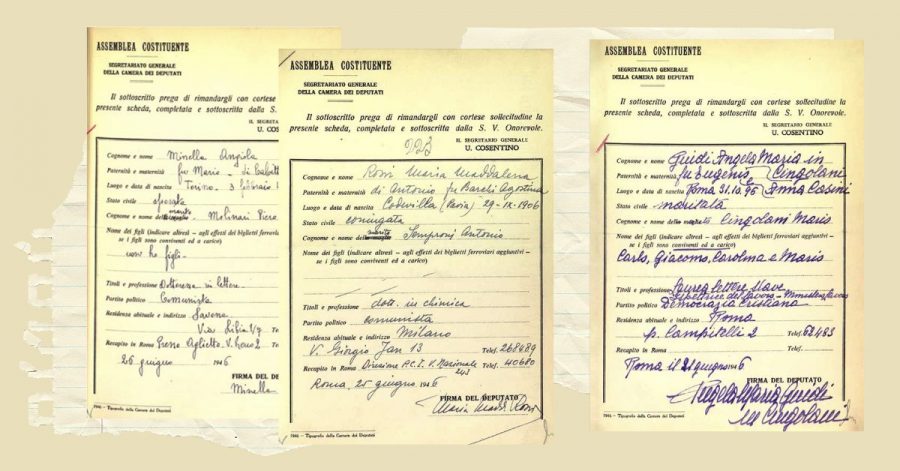 ASSEMBLEA COSTITUENTE
SEGRETARIATO GENERALE
DELLA CAMERA DEI DEPUTATI
Il sottoscritto prega di rimandargli con cortese
presente scheda, completata e sottoscritta dalla S. V.
IL SEGRETARIO
U. COSENTINO
Cognome e nome Minella Angiola
Paternità e maternità fu Mario - di
Luogo e data di nascita Torino 3 febbraio
Stato civile sposata
Cognome e nome marito Molinari Piero
Nome dei figli (indicare altresì - agli effetti dei biglietti ferroviari
se i figli sono conviventi ed a carico)
non ho figli
Titoli e professione Dottoressa in lettere
Partito politico Comunista
Residenza abituale e indirizzo Savona
Via
Recapito in Roma Presso
26 giugno 1946
FIRMA DEL
Minella
1946 - Tipografia della Camera dei Deputati
ASSEMBLEA COSTITUENTE
SEGRETARIATO GENERALE
DELLA CAMERA DEI DEPUTATI
Il sottoscritto prega di rimandargli con cortese sollecitudine la
presente scheda, completata e sottoscritta dalla S. V. Onorevole.
IL SEGRETARIO GENERALE
U. COSENTINO
223
Cognome e nome Rossi Maria Maddalena
Paternità e maternità di Antonio fu Bareli Agostina
Luogo e data di nascita Codevilla (Pavia) 29-IX-1906
Stato civile coniugata
Cognome e nome marito Semproni Antonio
Nome dei figli (indicare altresì - agli effetti dei biglietti ferroviari aggiuntivi -
se i figli sono conviventi ed a carico)
Titoli e professione dott. in chimica
Partito politico comunista
Residenza abituale e indirizzo Milano
V. Giorgio Jan 13 Telef. 268489
Recapito in Roma Direzione P.C.I. V. Nazionale 243 Telef. 40680
Roma, 25 giugno 1946
FIRMA DEL DEPUTATO
Maria Madd. Rossi
1946 - Tipografia della Camera dei Deputati
ASSEMBLEA COSTITUENTE
SEGRETARIATO GENERALE
DELLA CAMERA DEI DEPUTATI
Il sottoscritto prega di rimandargli con cortese sollecitudine la
presente scheda, completata e sottoscritta dalla S. V. Onorevole.
IL SEGRETARIO GENERALE
U. COSENTINO
Cognome e nome Guidi Angela Maria in Cingolani
Paternità e maternità fu Eugenio e Anna Casini
Luogo e data di nascita Roma 31.10.96
Stato civile maritata
Cognome e nome del marito Cingolani Mario
Nome dei figli (indicare altresì - agli effetti dei biglietti ferroviari aggiuntivi -
se i figli sono conviventi ed a carico)
Carlo, Giacomo, Carolina e Mario
Titoli e professione Laurea lettere slave
Ispettrice del Lavoro - Ministero Lavoro
Partito politico Democrazia Cristiana
Residenza abituale e indirizzo Roma
p. Campitelli 2 Telef. 62483
Recapito in Roma Telef.
Roma il 21 giugno 1946
FIRMA DEL DEPUTATO
Angela Maria Guidi
in Cingolani
1946 - Tipografia della Camera dei Deputati